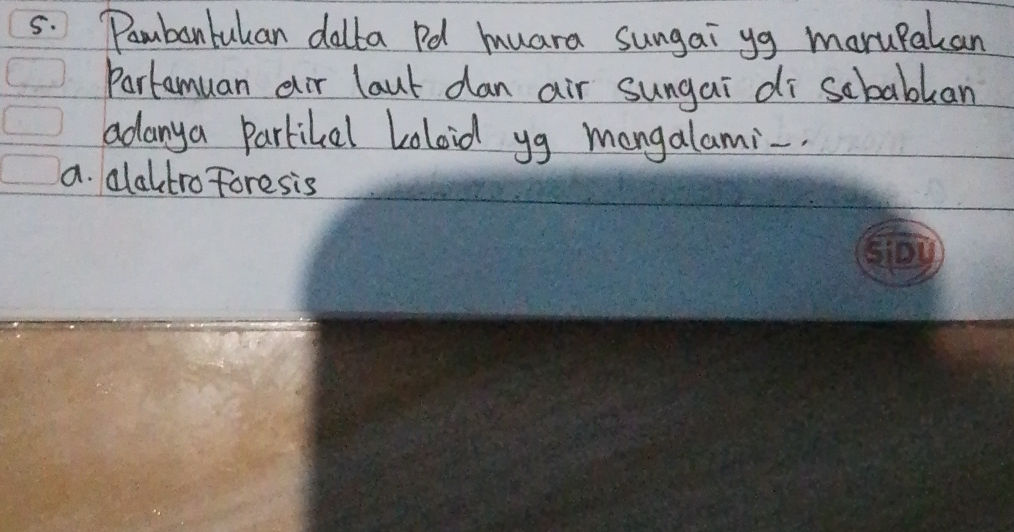 5. Pembentukan delta pd muara sungai yg merupakan
Pertemuan air laut dan air sungai di sebabkan
adanya partikel koloid yg mengalami-..
a. elektroforesis
SiDU